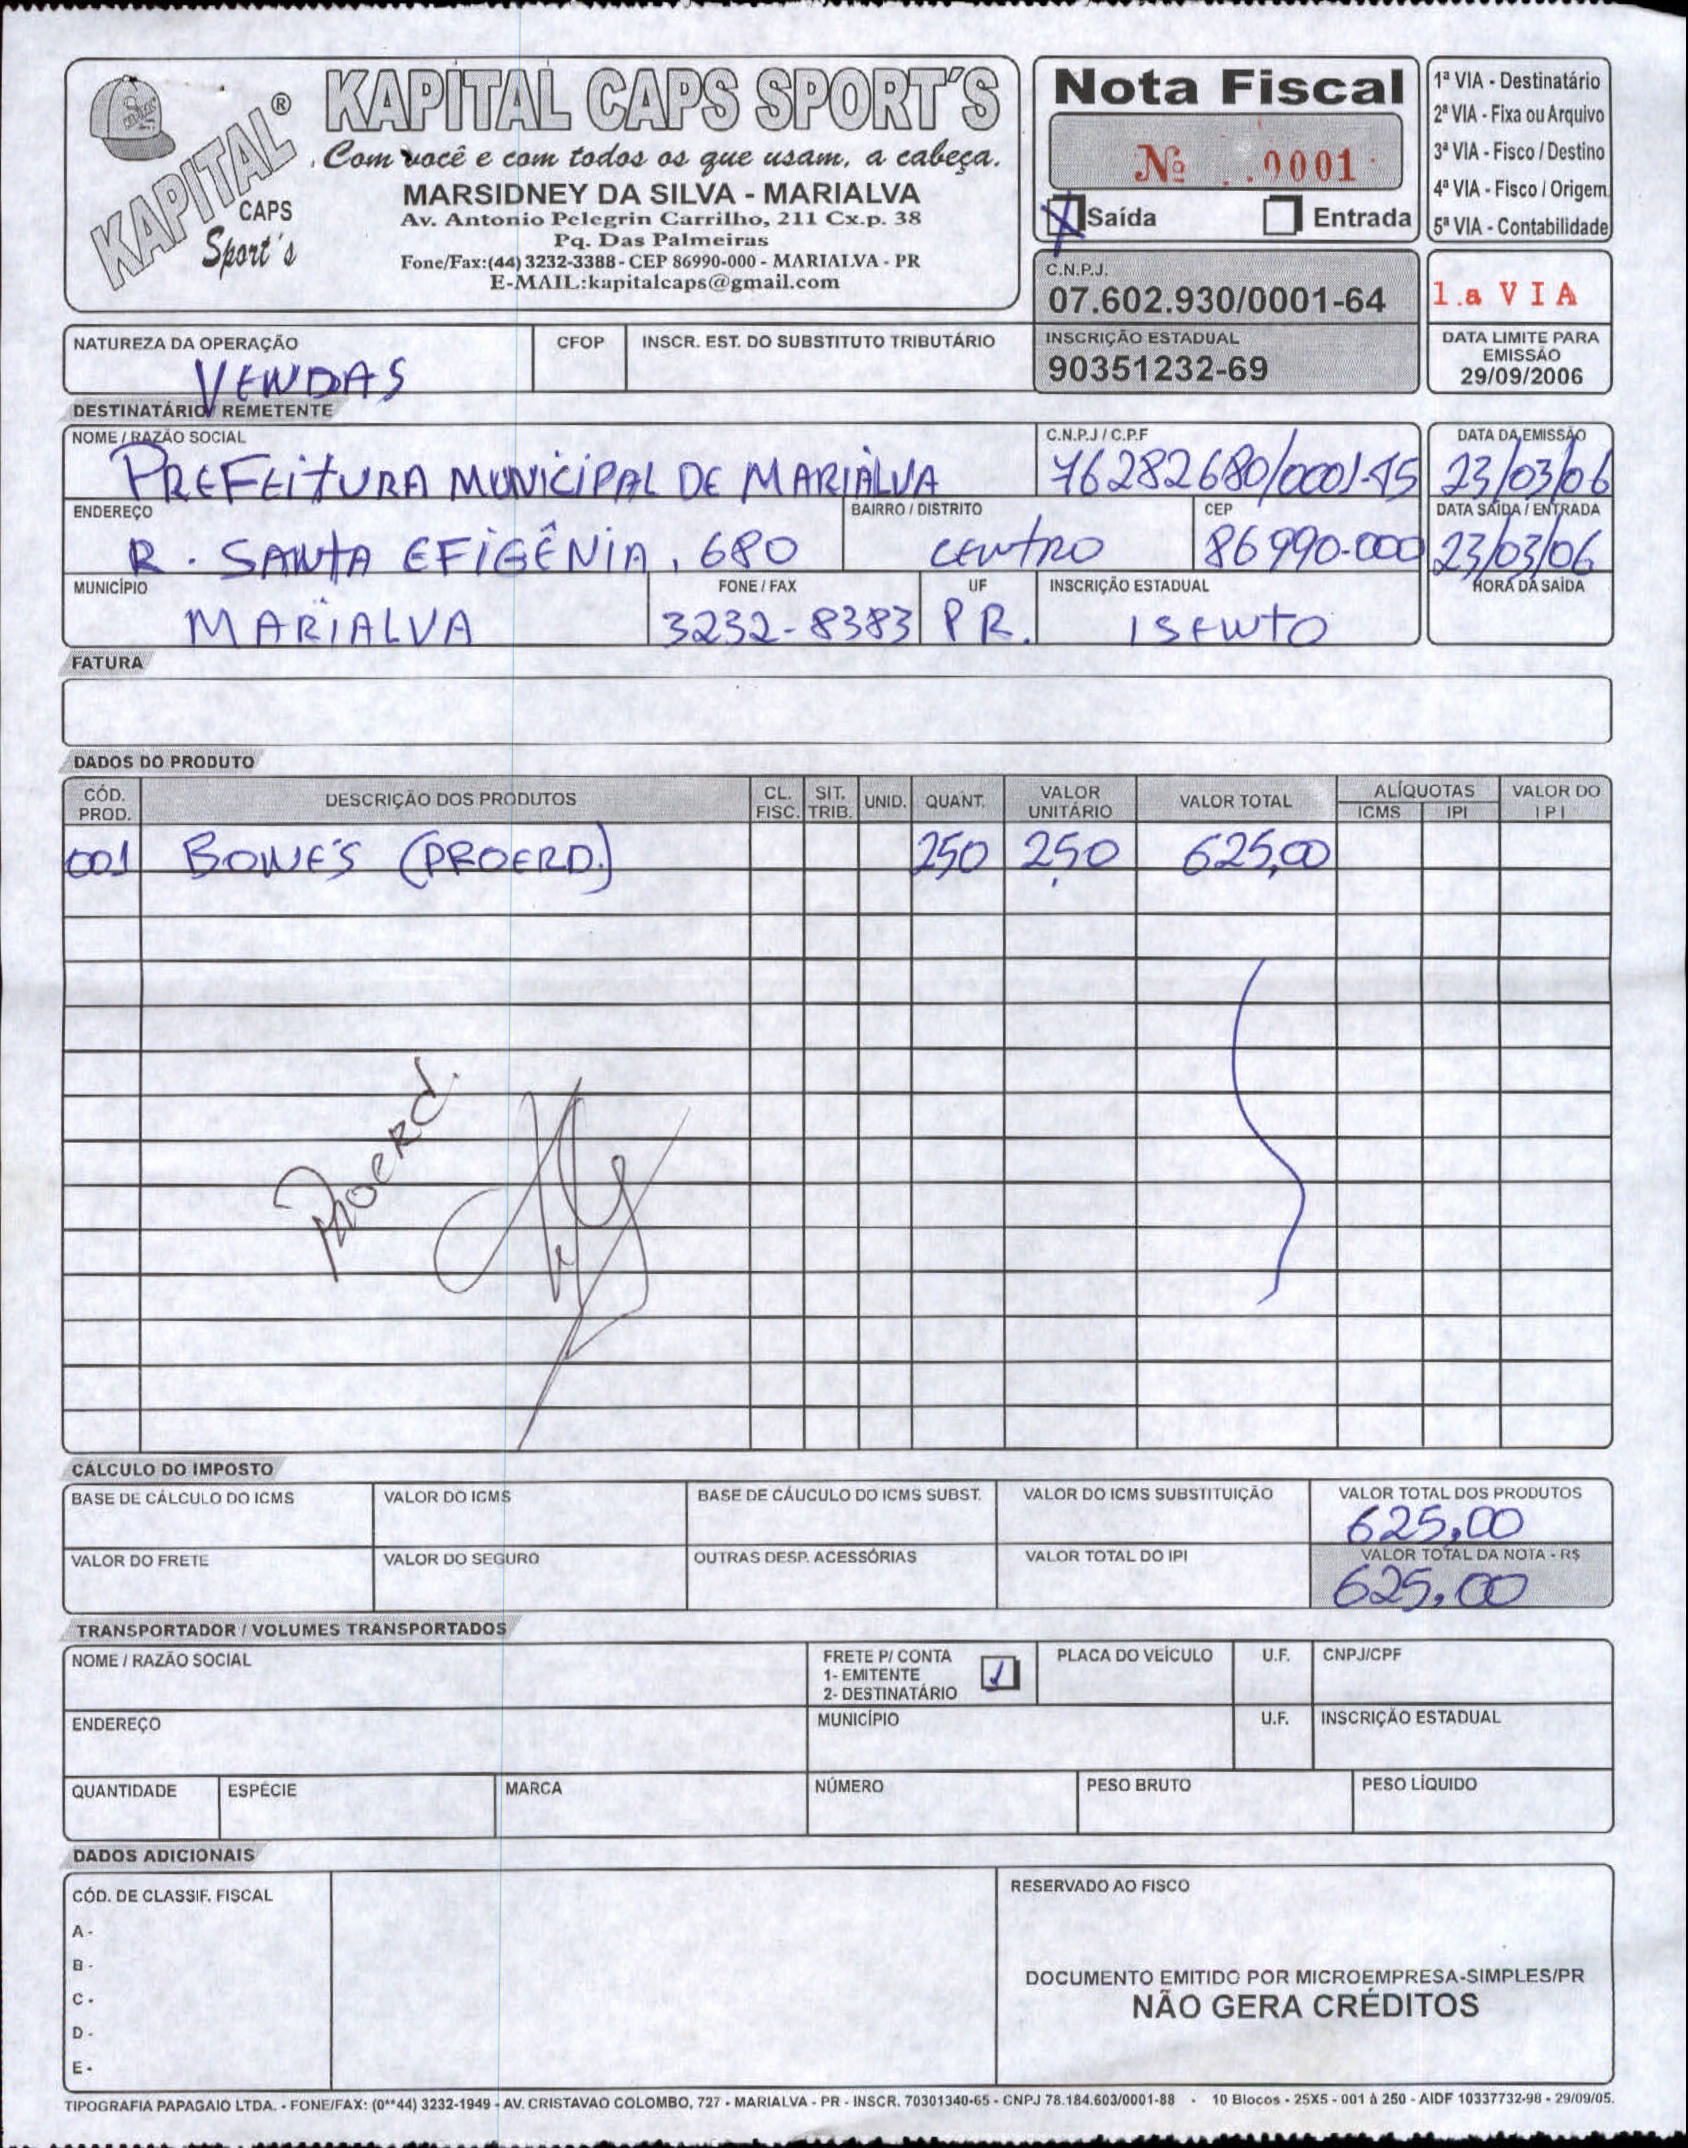 KAPITAL CAPS SPORT'S
KAPITAL®
CAPS
Sport's
Com você e com todos os que usam, a cabeça.
MARSIDNEY DA SILVA - MARIALVA
Av. Antonio Pelegrin Carrilho, 211 Cx.p. 38
Pq. Das Palmeiras
Fone/Fax:(44) 3232-3388 - CEP 86990-000 - MARIALVA - PR
E-MAIL:kapitalcaps@gmail.com
Nota Fiscal
Nº 0001
X Saída Entrada
1ª VIA - Destinatário
2ª VIA - Fixa ou Arquivo
3ª VIA - Fisco / Destino
4ª VIA - Fisco / Origem
5ª VIA - Contabilidade
C.N.P.J.
07.602.930/0001-64
1.a VIA
INSCRIÇÃO ESTADUAL
90351232-69
DATA LIMITE PARA
EMISSÃO
29/09/2006
NATUREZA DA OPERAÇÃO
VENDAS
CFOP
INSCR. EST. DO SUBSTITUTO TRIBUTÁRIO
DESTINATÁRIO / REMETENTE
NOME / RAZÃO SOCIAL
PREFEITURA MUNICIPAL DE MARIALVA
C.N.P.J / C.P.F
76282680/0001-45
DATA DA EMISSÃO
23/03/06
ENDEREÇO
R. SANTA EFIGÊNIA, 680
BAIRRO / DISTRITO
CENTRO
CEP
86990-000
DATA SAÍDA / ENTRADA
23/03/06
MUNICÍPIO
MARIALVA
FONE / FAX
3232-8383
UF
PR.
INSCRIÇÃO ESTADUAL
ISENTO
HORA DA SAÍDA
FATURA
DADOS DO PRODUTO
CÓD. PROD. DESCRIÇÃO DOS PRODUTOS CL. FISC. SIT. TRIB. UNID. QUANT. VALOR UNITÁRIO VALOR TOTAL ALÍQUOTAS ICMS IPI VALOR DO I P I
001 BONÉ'S (PROERD.) 250 2,50 625,00
Proerd.
CÁLCULO DO IMPOSTO
BASE DE CÁLCULO DO ICMS
VALOR DO ICMS
BASE DE CÁUCULO DO ICMS SUBST.
VALOR DO ICMS SUBSTITUIÇÃO
VALOR TOTAL DOS PRODUTOS
625,00
VALOR DO FRETE
VALOR DO SEGURO
OUTRAS DESP. ACESSÓRIAS
VALOR TOTAL DO IPI
VALOR TOTAL DA NOTA - R$
625,00
TRANSPORTADOR / VOLUMES TRANSPORTADOS
NOME / RAZÃO SOCIAL
FRETE P/ CONTA
1- EMITENTE
2- DESTINATÁRIO
1
PLACA DO VEÍCULO
U.F.
CNPJ/CPF
ENDEREÇO
MUNICÍPIO
U.F.
INSCRIÇÃO ESTADUAL
QUANTIDADE
ESPÉCIE
MARCA
NÚMERO
PESO BRUTO
PESO LÍQUIDO
DADOS ADICIONAIS
CÓD. DE CLASSIF. FISCAL
A -
B -
C -
D -
E -
RESERVADO AO FISCO
DOCUMENTO EMITIDO POR MICROEMPRESA-SIMPLES/PR
NÃO GERA CRÉDITOS
TIPOGRAFIA PAPAGAIO LTDA. - FONE/FAX: (0**44) 3232-1949 - AV. CRISTAVAO COLOMBO, 727 - MARIALVA - PR - INSCR. 70301340-65 - CNPJ 78.184.603/0001-88 - 10 Blocos - 25X5 - 001 à 250 - AIDF 10337732-98 - 29/09/05.